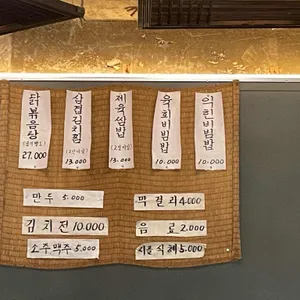 닭볶음상
27,000
삼겹김치찜
13.000
제육쌈밥
13.000
육회비빔밥
10.000
익힌비빔밥
10.000
만두 5.000
막걸리 4.000
김치전 10.000
음료 2.000
소주맥주 5.000
식혜 5.000